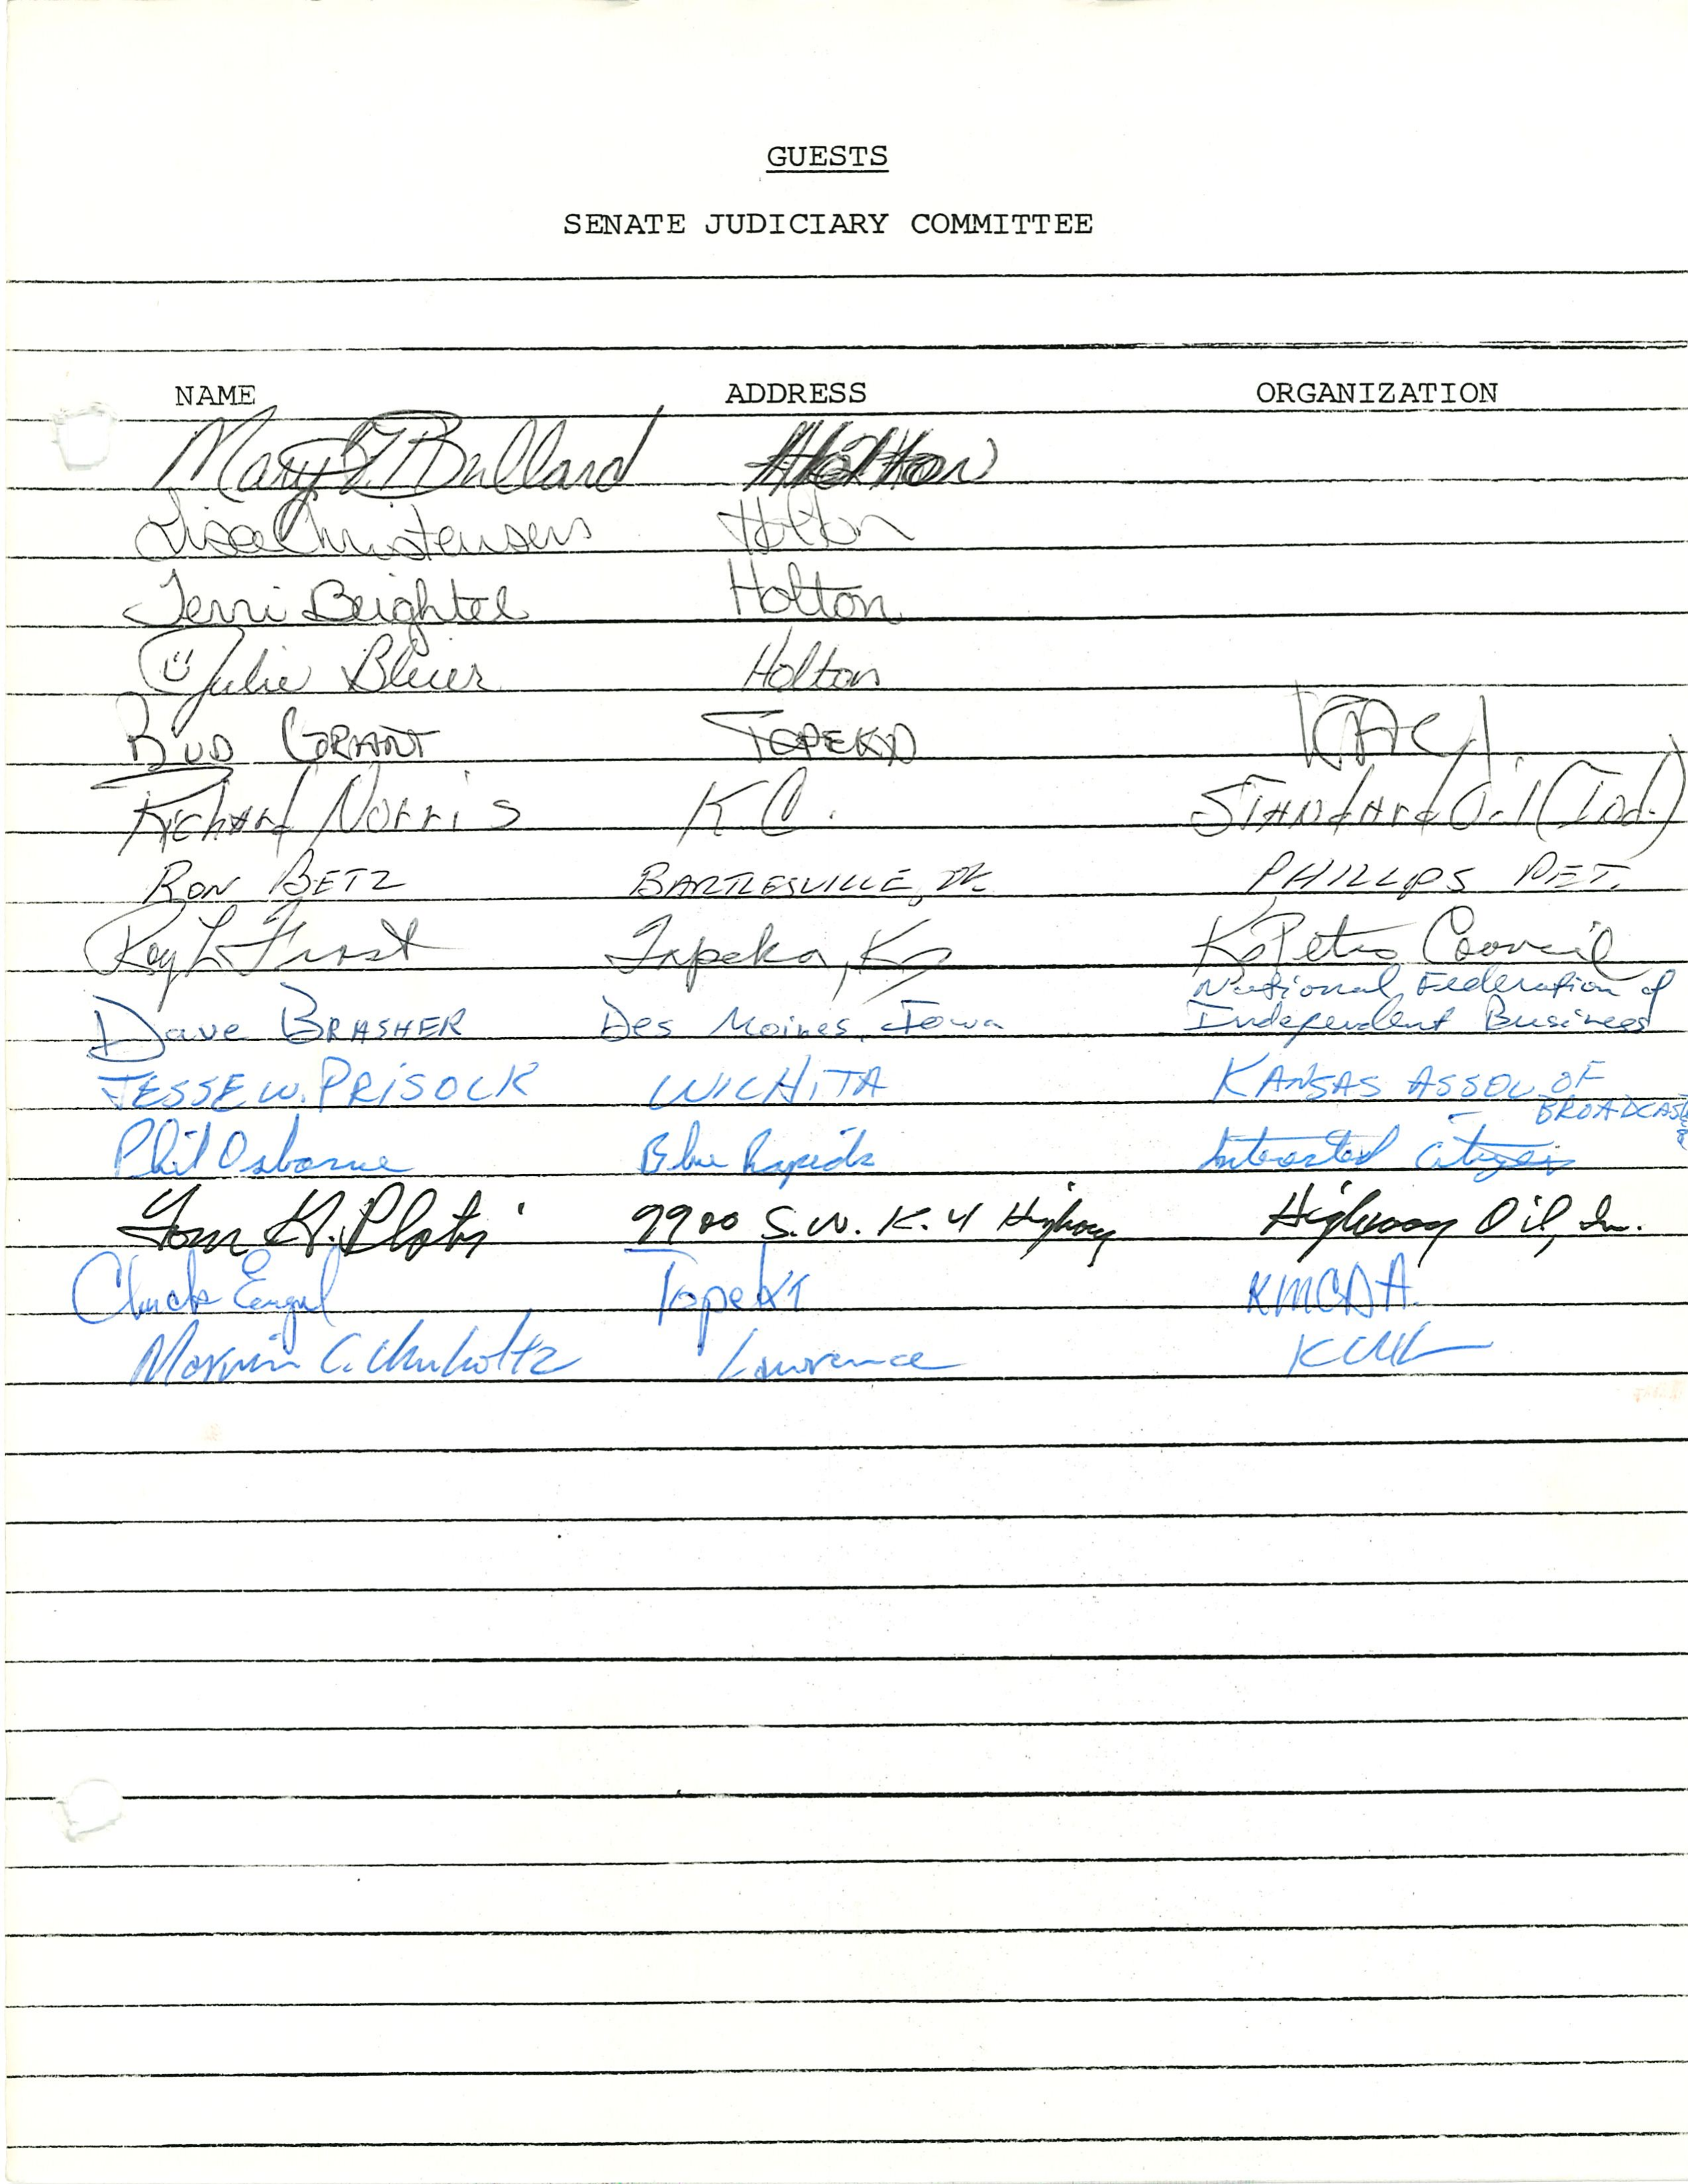 GUESTS
SENATE JUDICIARY COMMITTEE
NAME ADDRESS ORGANIZATION
Mary Bullard Holton
Lisa Christensen Holton
Terri Beightel Holton
Julie Bleier Holton
BUD GRANT TOPEKA KACI
Richard Norris K.C. Standard Oil (Ind.)
RON BETZ BARTLESVILLE, OK PHILLIPS PET.
Topeka, Ks Ks Petro Council
Dave BRASHER Des Moines, Iowa National Federation of
Independent Business
JESSE W. PRISOCK WICHITA KANSAS ASSOC OF
BROADCASTERS
Phil Osborne Blue Rapids Interested Citizen
Tom H. 9900 S.W. K-4 Highway Highway Oil, In.
Chuck Engel Topeka KMCDA
Marvin C. Lawrence